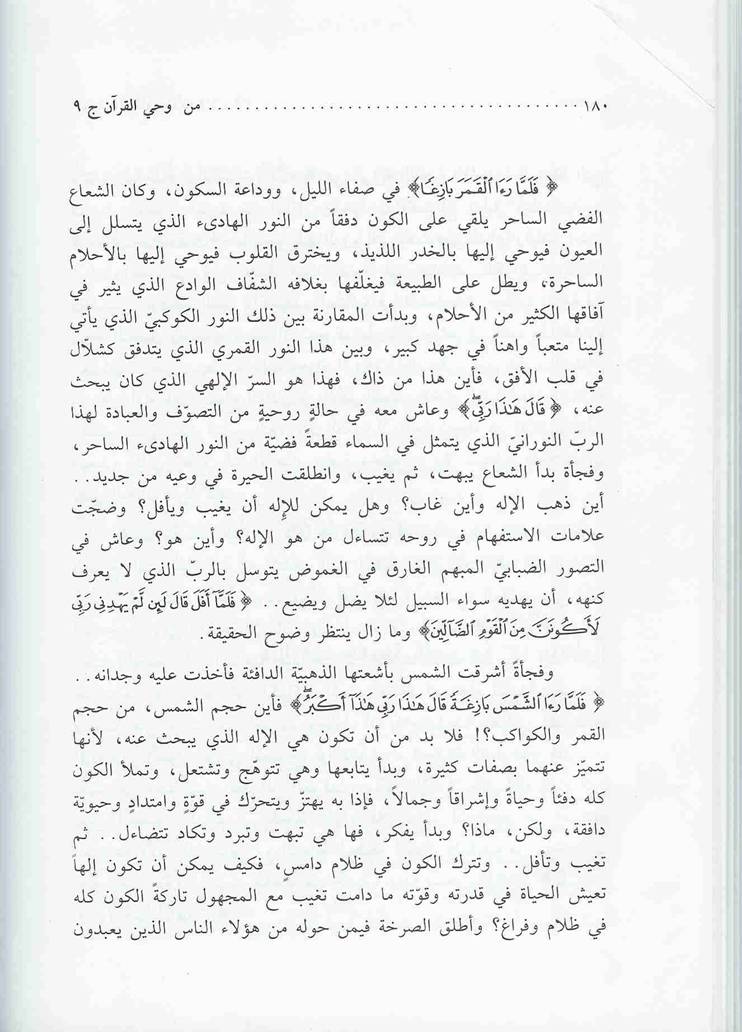 ١٨٠ ........................................ من وحي القرآن ج ٩
﴿ فَلَمَّا رَءَا ٱلْقَمَرَ بَازِغًا﴾ في صفاء الليل، ووداعة السكون، وكان الشعاع
الفضي الساحر يلقي على الكون دفقاً من النور الهادىء الذي يتسلل إلى
العيون فيوحي إليها بالخدر اللذيذ، ويخترق القلوب فيوحي إليها بالأحلام
الساحرة، ويطل على الطبيعة فيغلّفها بغلافه الشفّاف الوادع الذي يثير في
آفاقها الكثير من الأحلام، وبدأت المقارنة بين ذلك النور الكوكبيّ الذي يأتي
إلينا متعباً واهناً في جهد كبير، وبين هذا النور القمري الذي يتدفق كشلّال
في قلب الأفق، فأين هذا من ذاك، فهذا هو السرّ الإلهي الذي كان يبحث
عنه، ﴿ قَالَ هَٰذَا رَبِّيۖ﴾ وعاش معه في حالةٍ روحيةٍ من التصوّف والعبادة لهذا
الربّ النورانيّ الذي يتمثل في السماء قطعةً فضيّة من النور الهادىء الساحر،
وفجأة بدأ الشعاع يبهت، ثم يغيب، وانطلقت الحيرة في وعيه من جديد..
أين ذهب الإله وأين غاب؟ وهل يمكن للإله أن يغيب ويأفل؟ وضجّت
علامات الاستفهام في روحه تتساءل من هو الإله؟ وأين هو؟ وعاش في
التصور الضبابيّ المبهم الغارق في الغموض يتوسل بالربّ الذي لا يعرف
كنهه، أن يهديه سواء السبيل لئلا يضل ويضيع.. ﴿ فَلَمَّآ أَفَلَ قَالَ لَئِن لَّمْ يَهْدِنِي رَبِّي
لَأَكُونَنَّ مِنَ ٱلْقَوْمِ ٱلضَّآلِّينَ﴾ وما زال ينتظر وضوح الحقيقة.
وفجأةً أشرقت الشمس بأشعتها الذهبيّة الدافئة فأخذت عليه وجدانه..
﴿ فَلَمَّا رَءَا ٱلشَّمْسَ بَازِغَةً قَالَ هَٰذَا رَبِّي هَٰذَآ أَكْبَرُۖ﴾ فأين حجم الشمس، من حجم
القمر والكواكب؟! فلا بد من أن تكون هي الإله الذي يبحث عنه، لأنها
تتميّز عنهما بصفات كثيرة، وبدأ يتابعها وهي تتوهّج وتشتعل، وتملأ الكون
كله دفئاً وحياةً وإشراقاً وجمالاً، فإذا به يهتزّ ويتحرّك في قوّةٍ وامتدادٍ وحيويّة
دافقة، ولكن، ماذا؟ وبدأ يفكر، فها هي تبهت وتبرد وتكاد تتضاءل.. ثم
تغيب وتأفل.. وتترك الكون في ظلام دامسٍ، فكيف يمكن أن تكون إلهاً
تعيش الحياة في قدرته وقوّته ما دامت تغيب مع المجهول تاركةً الكون كله
في ظلام وفراغ؟ وأطلق الصرخة فيمن حوله من هؤلاء الناس الذين يعبدون